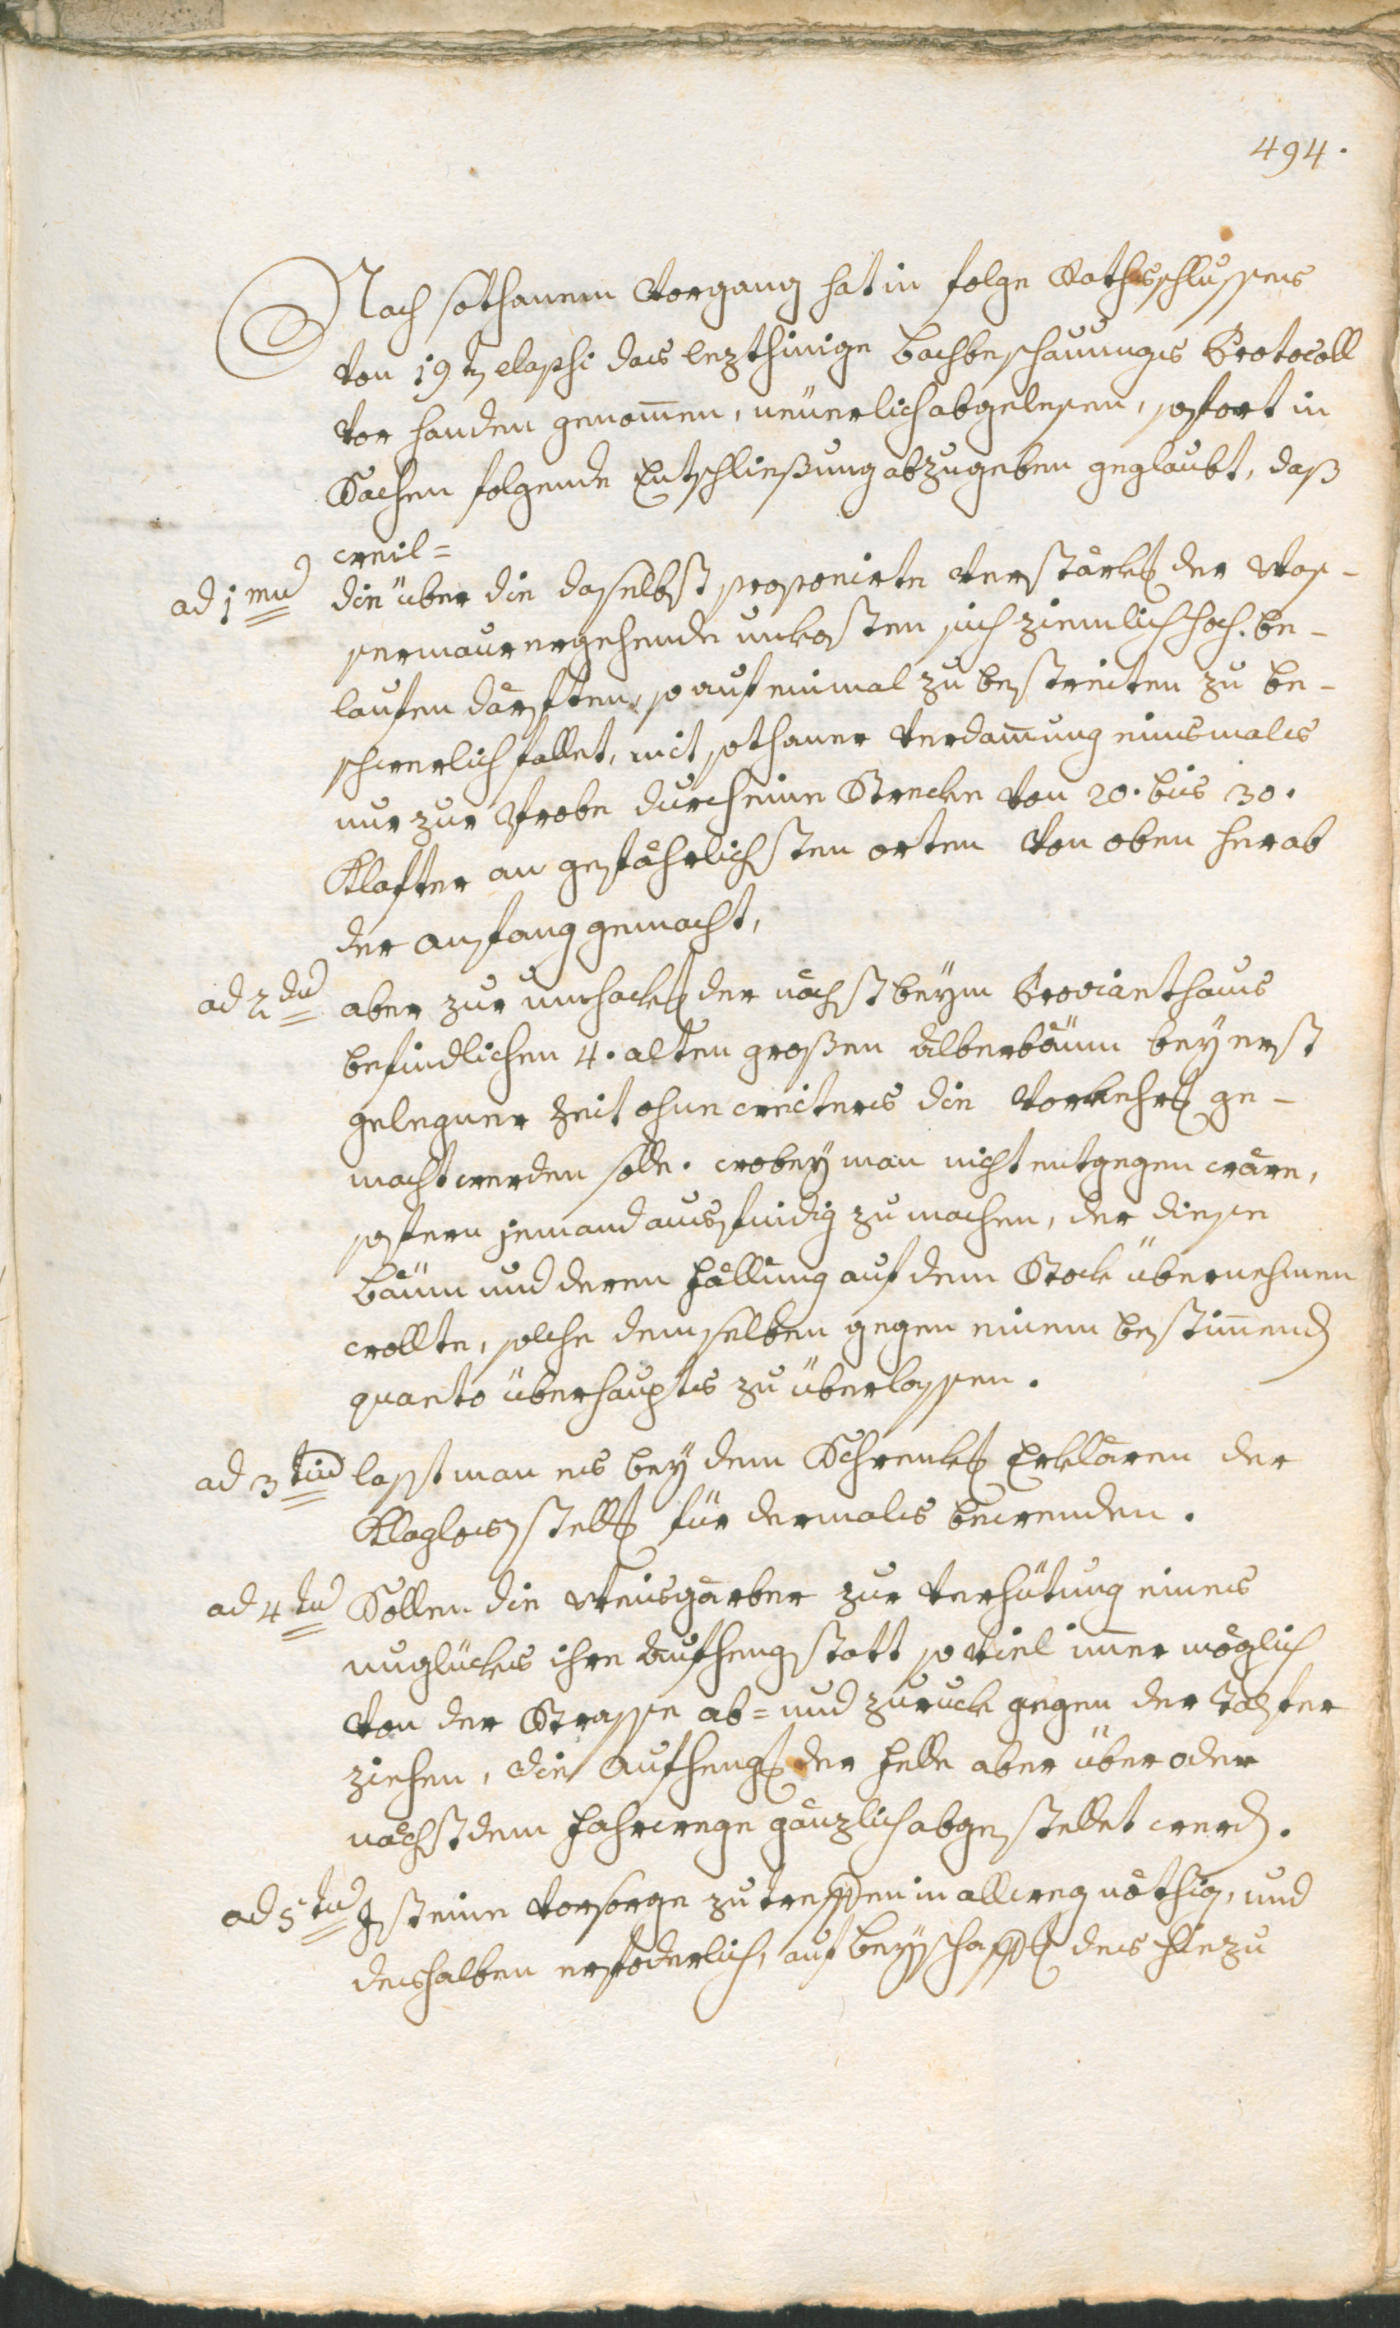 494.
Nach sothanem Vorgang hat in folge Rathsschlusses
von 19t. elapsi das lezthinige bachbeschauungs Protocoll
vor handen genomen, neuerlich abgelesen, sofort in
Sachen folgende Entschließung abzugeben geglaubt, daß
weil=
ad 1mū die über die daselbst proponirte Verstärkg der Was-
sermaur ergehende unkosten sich ziemlich hoch be-
laufen därften, so auf einmal zu bestreiten zu be-
schwerlich fallet, mit sothaner Verdamung einsmals
nur zur Probe durch eine Strecke von 20. bis 30.
Klafter an gefährlichsten orten von oben herab
der anfang gemacht,
ad 2dū aber zur umhackg der nächst beym Provianthaus
befindlichen 4. alten großen Alberbäum bey erst
gelegner Zeit ohne weiters die Vorkehrg ge-
macht werden solle. wobey man nicht entgegen wäre,
sofern jemand ausfindig zu machen, der diese
bäum und deren Fällung auf dem Stock übernehmen
wollte, solche demselben gegen einem bestimend
quanto überhaupts zu überlassen.
ad 3tiū last man es bey dem Schrenkg Erklären der
Klaglosstellg für dermals bewenden.
ad 4tū Sollen die Weisgärber zur Verhütung eines
unglücks ihre Aufhengstatt so viel imer möglich
von der Strasse ab= und zuruck gegen der Talfer
ziehen, die Aufhengg der Felle aber über oder
nächst dem Fahrwege gänzlich abgestellet werd.
ad 5tū Ist eine Vorsorge zu treffen in allweg nöthig, und
deshalben erfoderlich, auf beyschaffg des hiezu